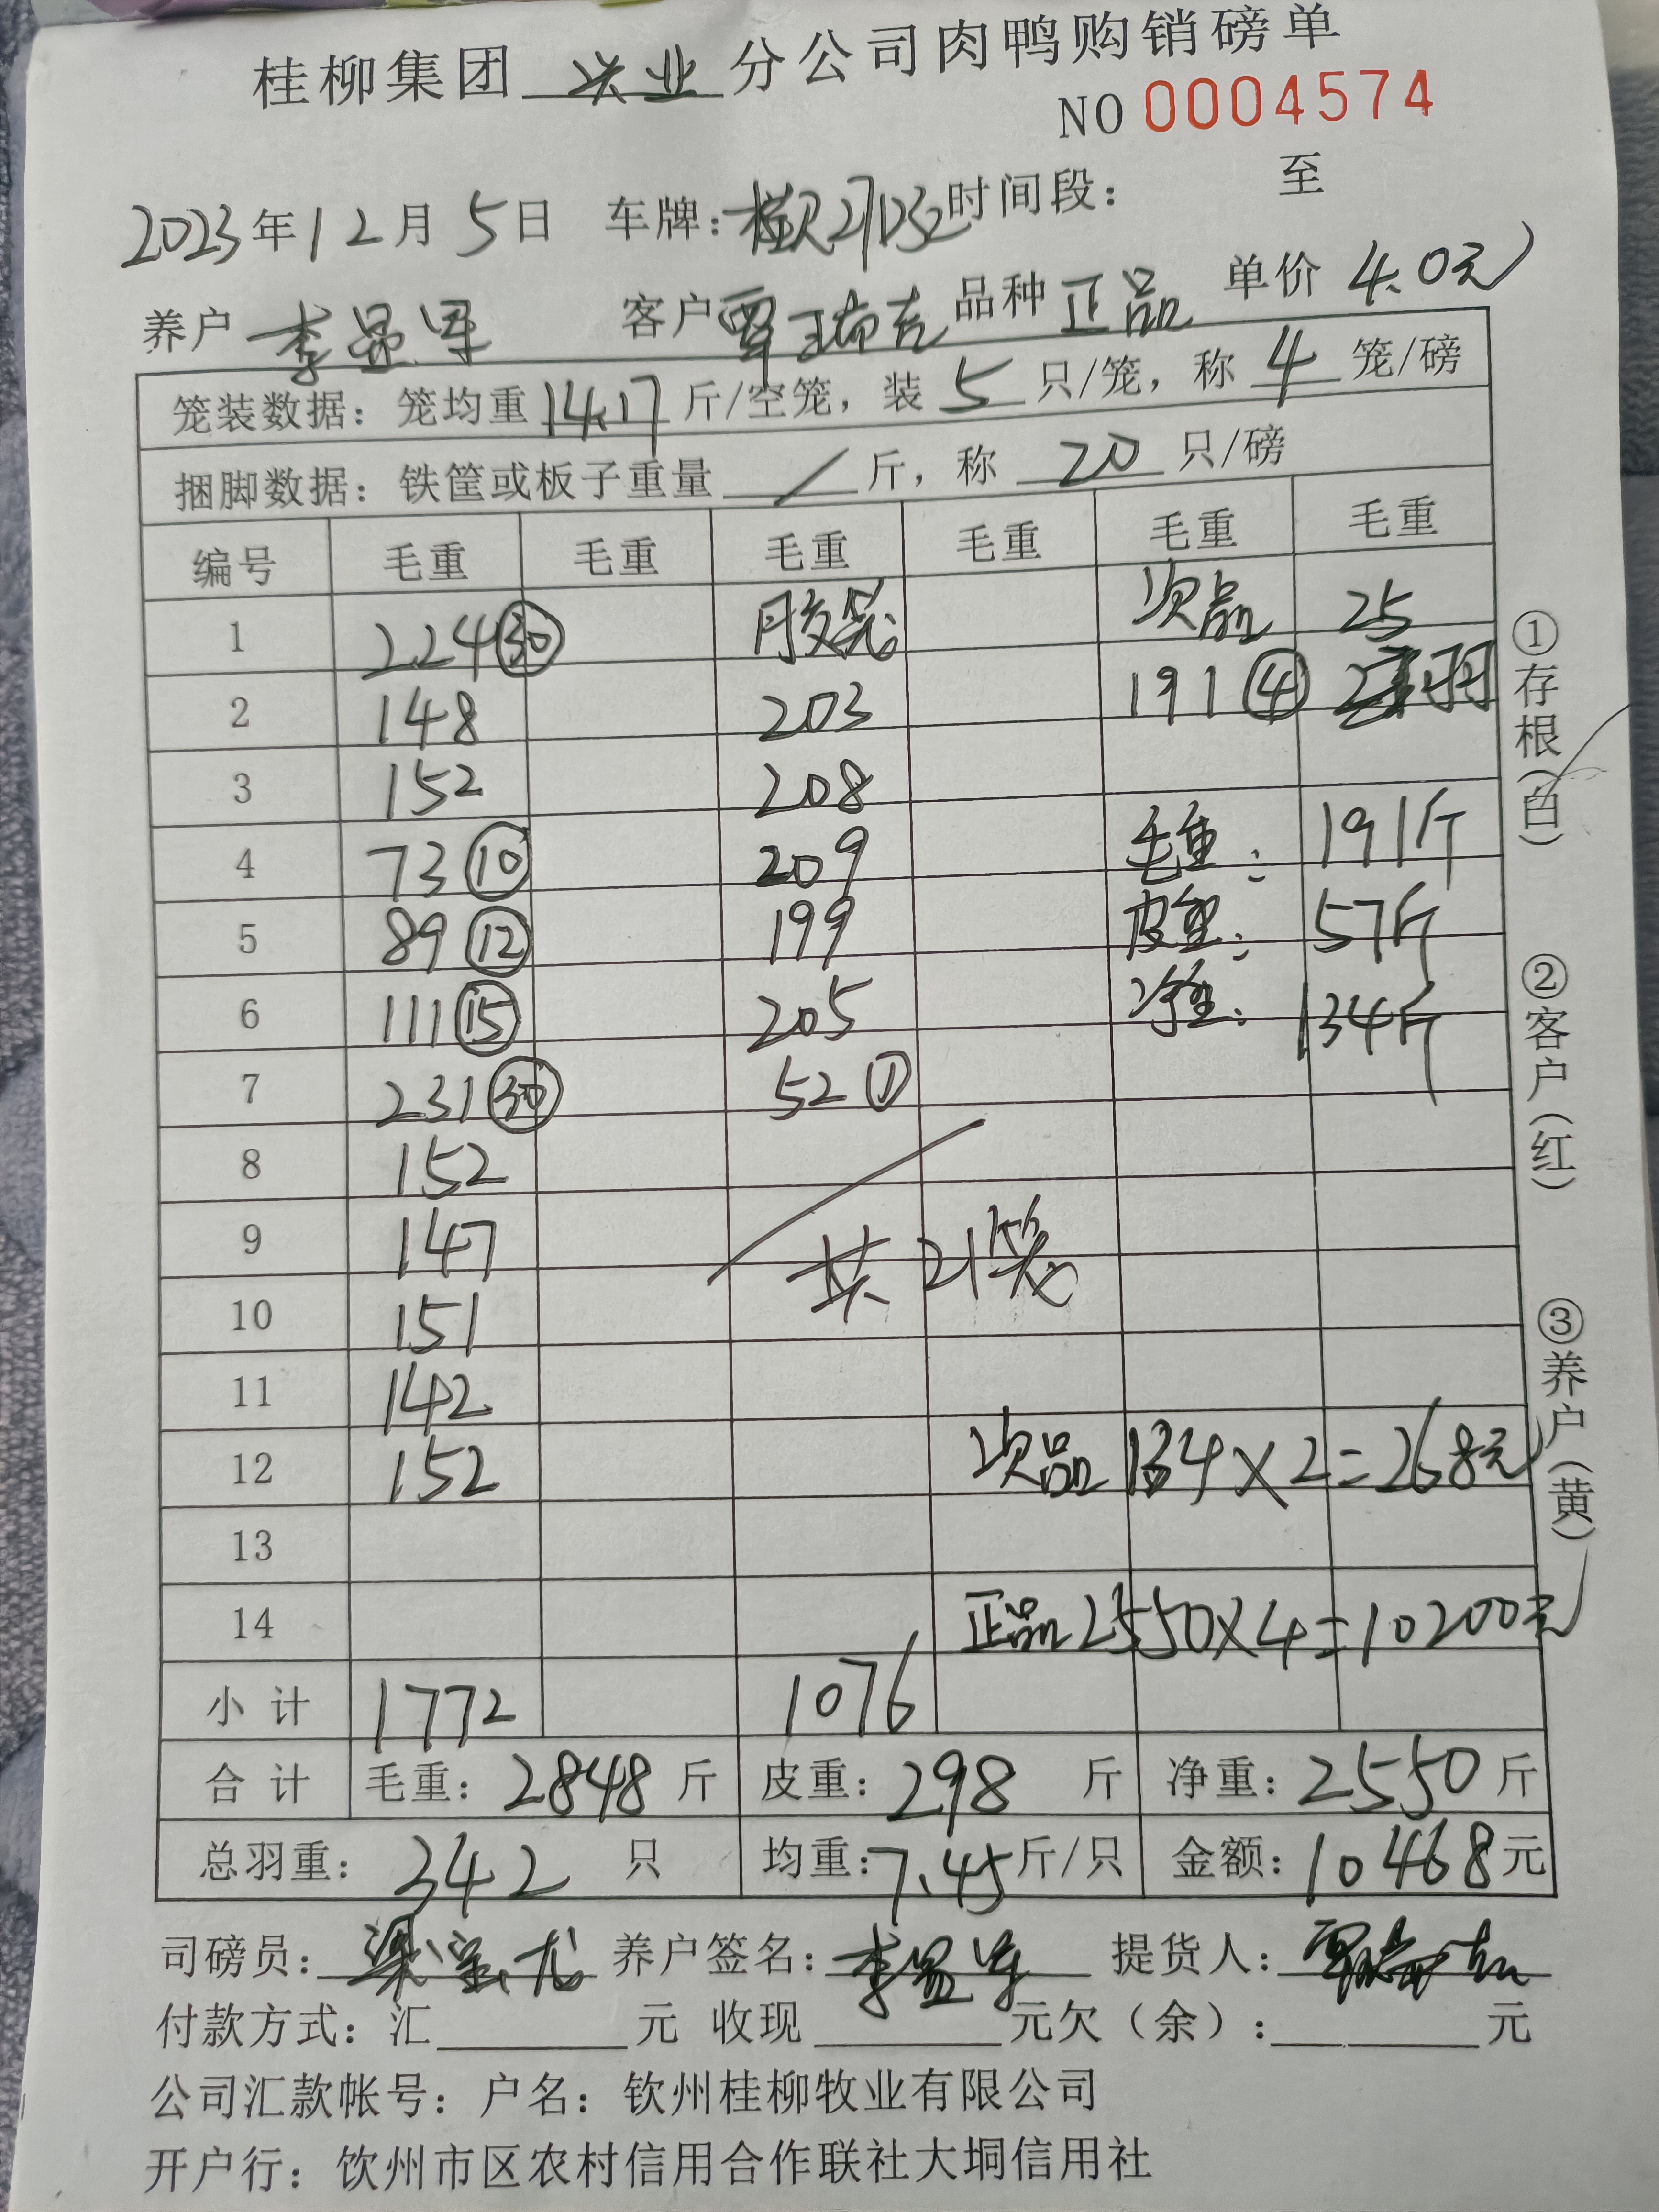 桂柳集团 兴业 分公司肉鸭购销磅单
NO 0004574
2023年12月5日 车牌: 时间段: 至
养户 李显军 客户 覃瑞吉 品种 正品 单价 4.0元
笼装数据: 笼均重 14.17 斤/空笼, 装 5 只/笼, 称 4 笼/磅
捆脚数据: 铁筐或板子重量 / 斤, 称 20 只/磅
编号 毛重 毛重 毛重 毛重 毛重 毛重
1 224 ㉚ 胶笼 次品 25
2 148 203 191 ④ 羽
3 152 208
4 73 ⑩ 209 毛重: 191斤
5 89 ⑫ 199 皮重: 57斤
6 111 ⑮ 205 净重: 134斤
7 231 ㉚ 52 ①
8 152
9 147 共21笼
10 151
11 142
12 152 次品 134×2=268元
13
14 正品 2550×4=10200元
小计 1772 1076
合计 毛重: 2848 斤 皮重: 298 斤 净重: 2550 斤
总羽重: 342 只 均重: 7.45 斤/只 金额: 10468 元
司磅员: 养户签名: 李显军 提货人: 覃瑞吉
付款方式: 汇 元 收现 元欠(余): 元
公司汇款帐号: 户名: 钦州桂柳牧业有限公司
开户行: 饮州市区农村信用合作联社大垌信用社
①存根(白)
②客户(红)
③养户(黄)